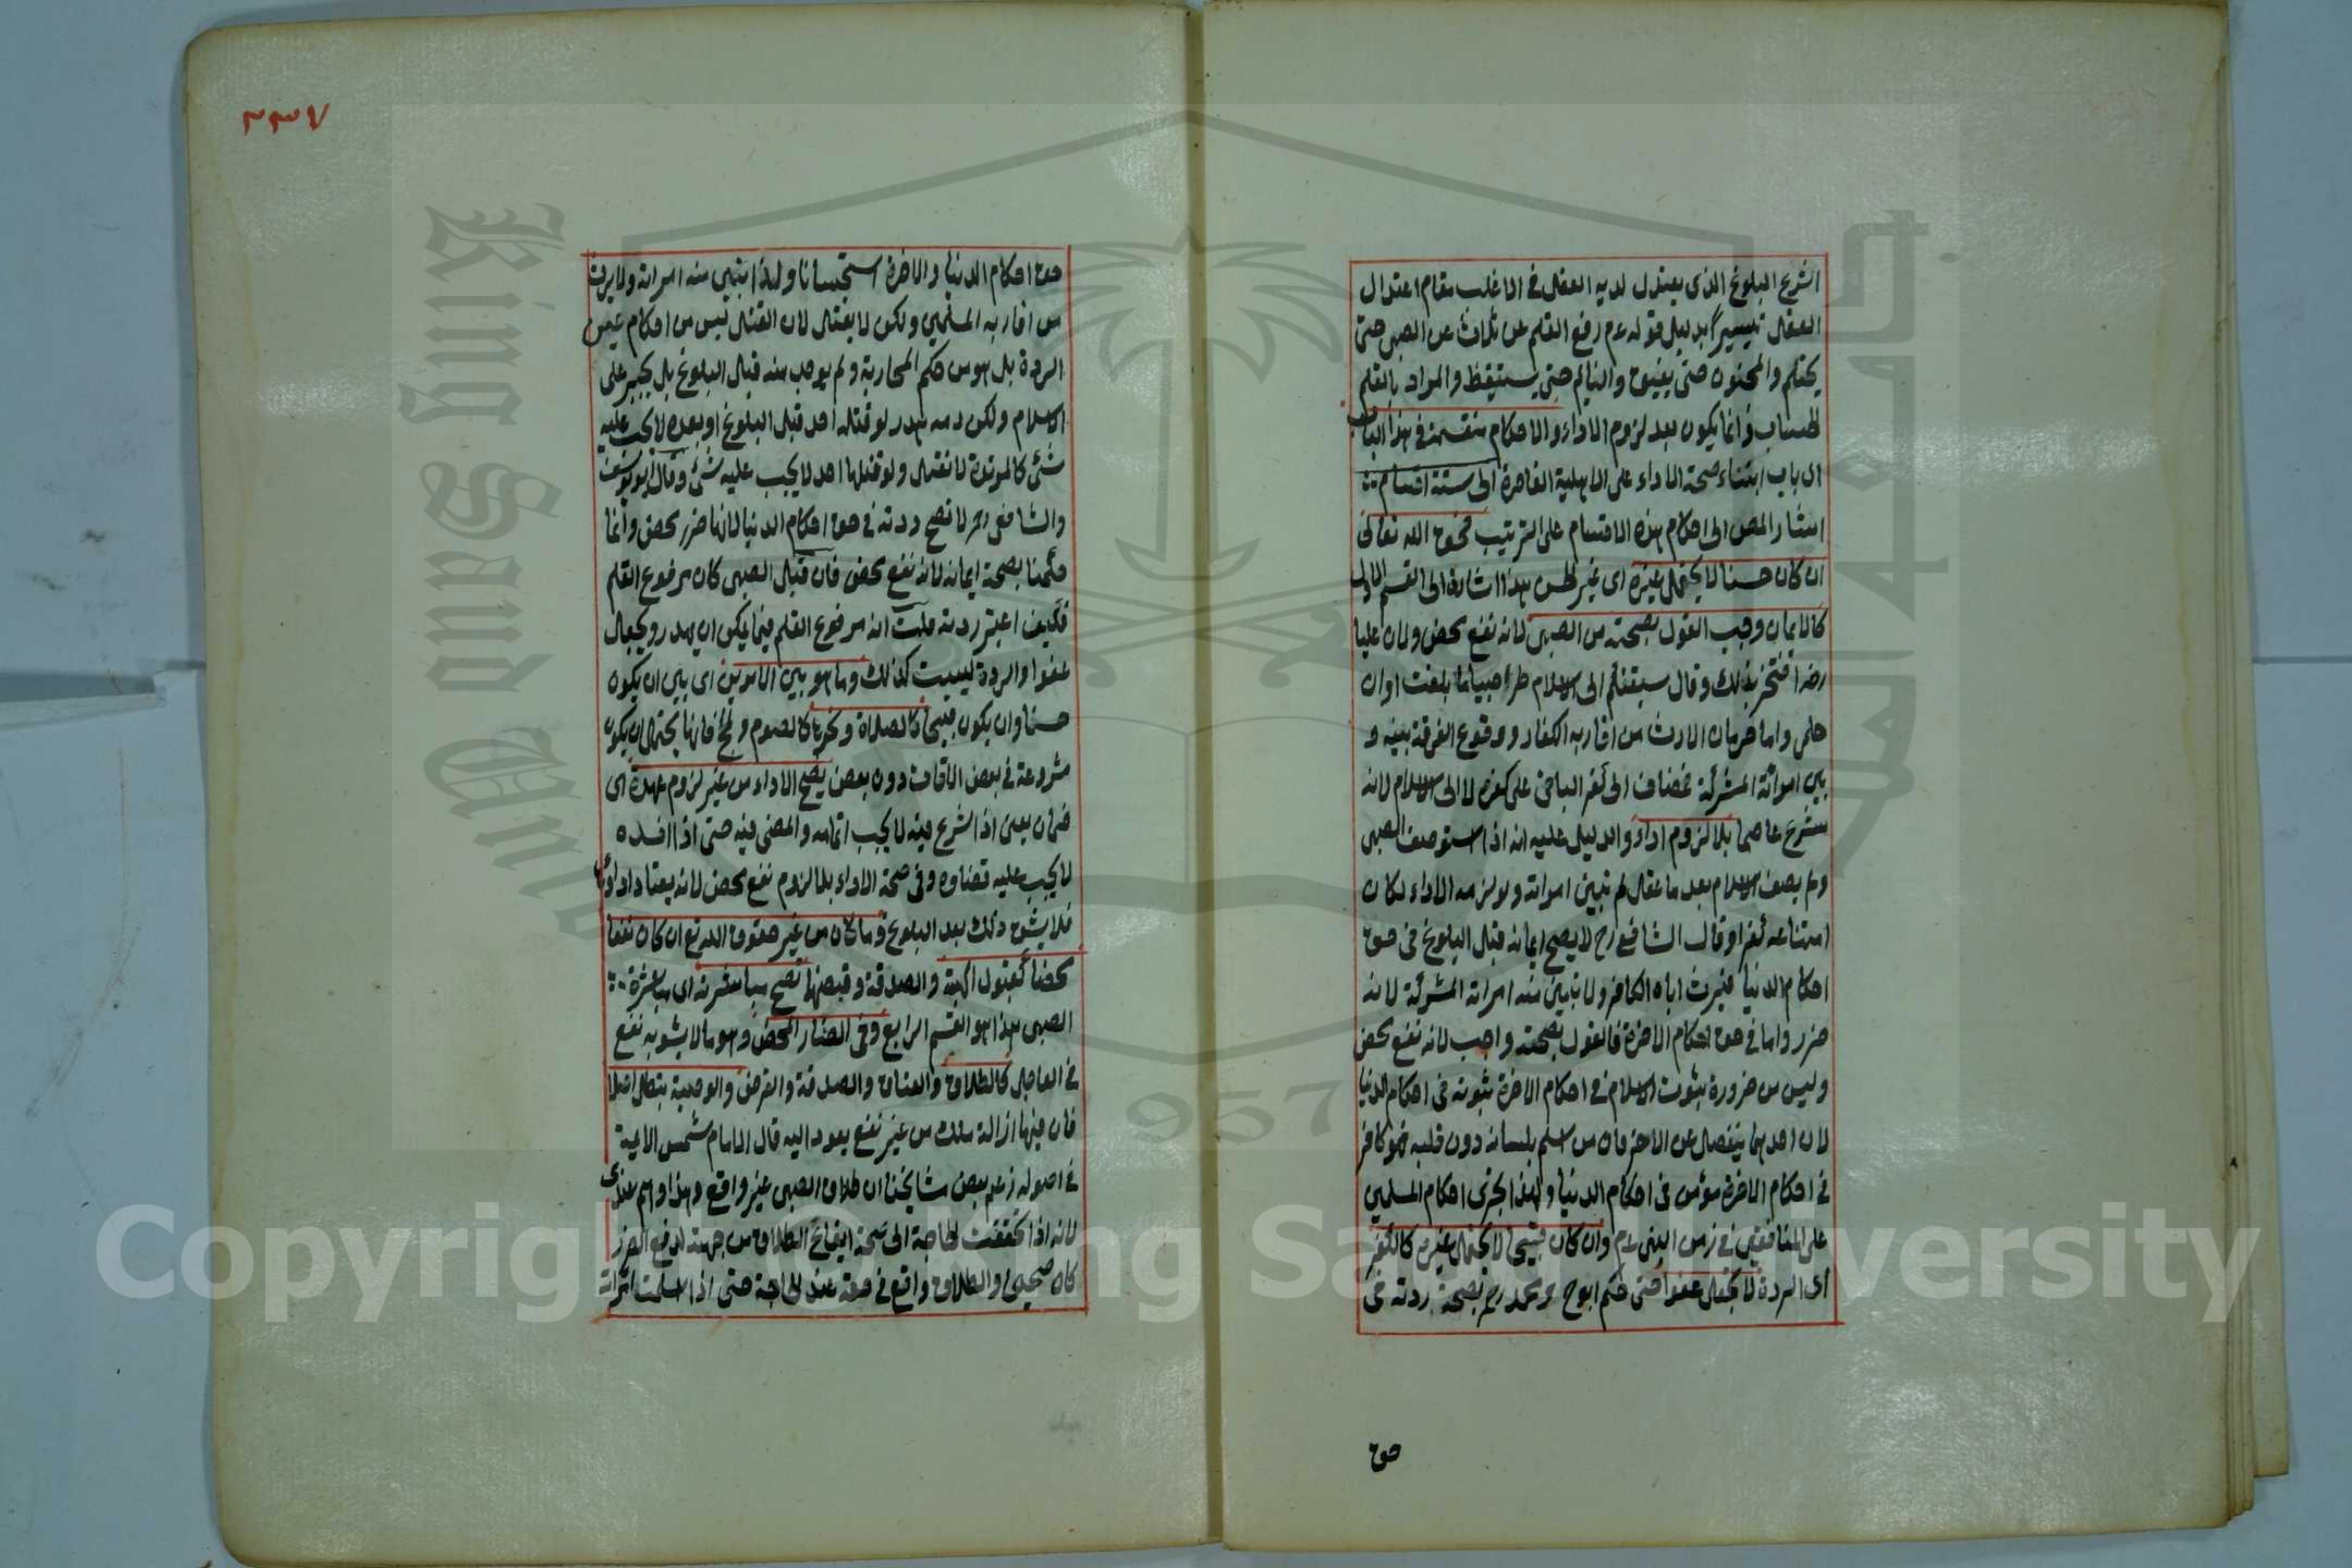 الشرع البلوغ الذى يعتدل لديه العقل فى الاغلب مقام اعتدال
العقل تيسيرا بدليل قوله عم رفع القلم عن ثلاث عن الصبى حتى
يحتلم والمجنون حتى يفيق والنايم حتى يستيقظ والمراد بالقلم
الحساب وانما يكون بعد لزوم الاداء والاحكام منقسمة فى هذا الباب
اى باب ابتناء صحة الاداء على الاهلية القاصرة الى ستة اقسام
اشار المص الى احكام هذه الاقسام على الترتيب فحق الله تعالى
ان كان حسنا لا يحتمل غيره اى غير الحسن هذا اشارة الى القسم الاول
كالايمان وجب القول بصحته من الصبى لانه نفع محض ولان عليا
رضه افتخر بذلك وقال سبقتكم الى الاسلام طرا صبيا ما بلغت اوان
حلمى واما حرمان الارث من اقاربه الكفار ووقوع الفرقة بينه و
بين امرأته المشركة فمضاف الى كفر الباقى على كفره لا الى الاسلام لانه
شرع عاصما بلا لزوم اداء والدليل عليه انه اذا استوصف الصبى
ولم يصف الاسلام بعد ما عقل لم تبين امراته ولو لزمه الاداء لكان
امتناعه كفرا وقال الشافعى رح لا يصح ايمانه قبل البلوغ فى حق
احكام الدنيا فيرث اباه الكافر ولا تبين منه امراته المشركة لانه
ضرر واما فى حق احكام الاخرة فالقول بصحته واجب لانه نفع محض
وليس من ضرورة ثبوت الاسلام فى احكام الاخرة ثبوته فى احكام الدنيا
لان احدهما ينفصل عن الاخر فان من اسلم بلسانه دون قلبه فهو كافر
فى احكام الاخرة مؤمن فى احكام الدنيا ولهذا اجرى احكام المسلمين
على المنافقين فى زمن النبى عم وان كان قبيحا لا يحتمل غيره كالكفر
اى الردة لا يجعل عفوا حتى حكم ابوح ومحمد رح بصحة ردته فى
حق
٣٣٧
حق احكام الدنيا والاخرة استحسانا ولهذا تبين منه امراته ولا يرث
من اقاربه المسلمين ولكن لا يقتل لان القتل ليس من احكام عين
الردة بل هو من حكم المحاربة ولم يوجب منه قبل البلوغ بل يجبر على
الاسلام ولكن دمه هدر لو قتله احد قبل البلوغ او بعده لا يجب عليه
شئ كالمرتدة لا تقتل ولو قتلها احد لا يجب عليه شئ وقال ابو يوسف
والشافعى رح لا تصح ردته فى حق احكام الدنيا لانها ضرر محض وانما
حكمنا بصحة ايمانه لانه نفع محض فان قيل الصبى كان مرفوع القلم
فكيف اعتبر ردته قلت انه مرفوع القلم فيما يمكن ان يهدر ويجعل
عفوا والردة ليست كذلك وما هو بين الامرين اى بين ان يكون
حسنا وان يكون قبيحا كالصلاة ونحوها كالصوم والحج فانها يحتمل ان يكون
مشروعة فى بعض الاوقات دون بعض يصح الاداء من غير لزوم عهدة اى
ضمان يعنى اذا شرع فيه لا يجب اتمامه والمضى فيه حتى اذا افسده
لا يجب عليه قضاؤه وفى صحة الاداء بلا لزوم نفع محض لانه يعتاد اداؤها
فلا يشق ذلك بعد البلوغ وما كان من غير حقوق الله تع ان كان نفعا
محضا كقبول الهبة والصدقة وقبضها تصح مباشرته اى مباشرة
الصبى هذا هو القسم الرابع وفى الضار المحض وهو ما لا يشوبه نفع
فى العاجل كالطلاق والعتاق والصدقة والقرض والوصية يبطل اصلا
فان فيها ازالة ملك من غير نفع يعود اليه قال الامام شمس الائمة
فى اصوله زعم بعض مشايخنا ان طلاق الصبى غير واقع وهذا وهم عندى
لانه اذا تحققت الحاجة الى صحة ايقاع الطلاق من جهته لدفع الضرر
كان صحيحا والطلاق واقع فى حقه عند الحاجة حتى اذا اسلمت امرأته
Copyright © King Saud University
King Saud University
1957